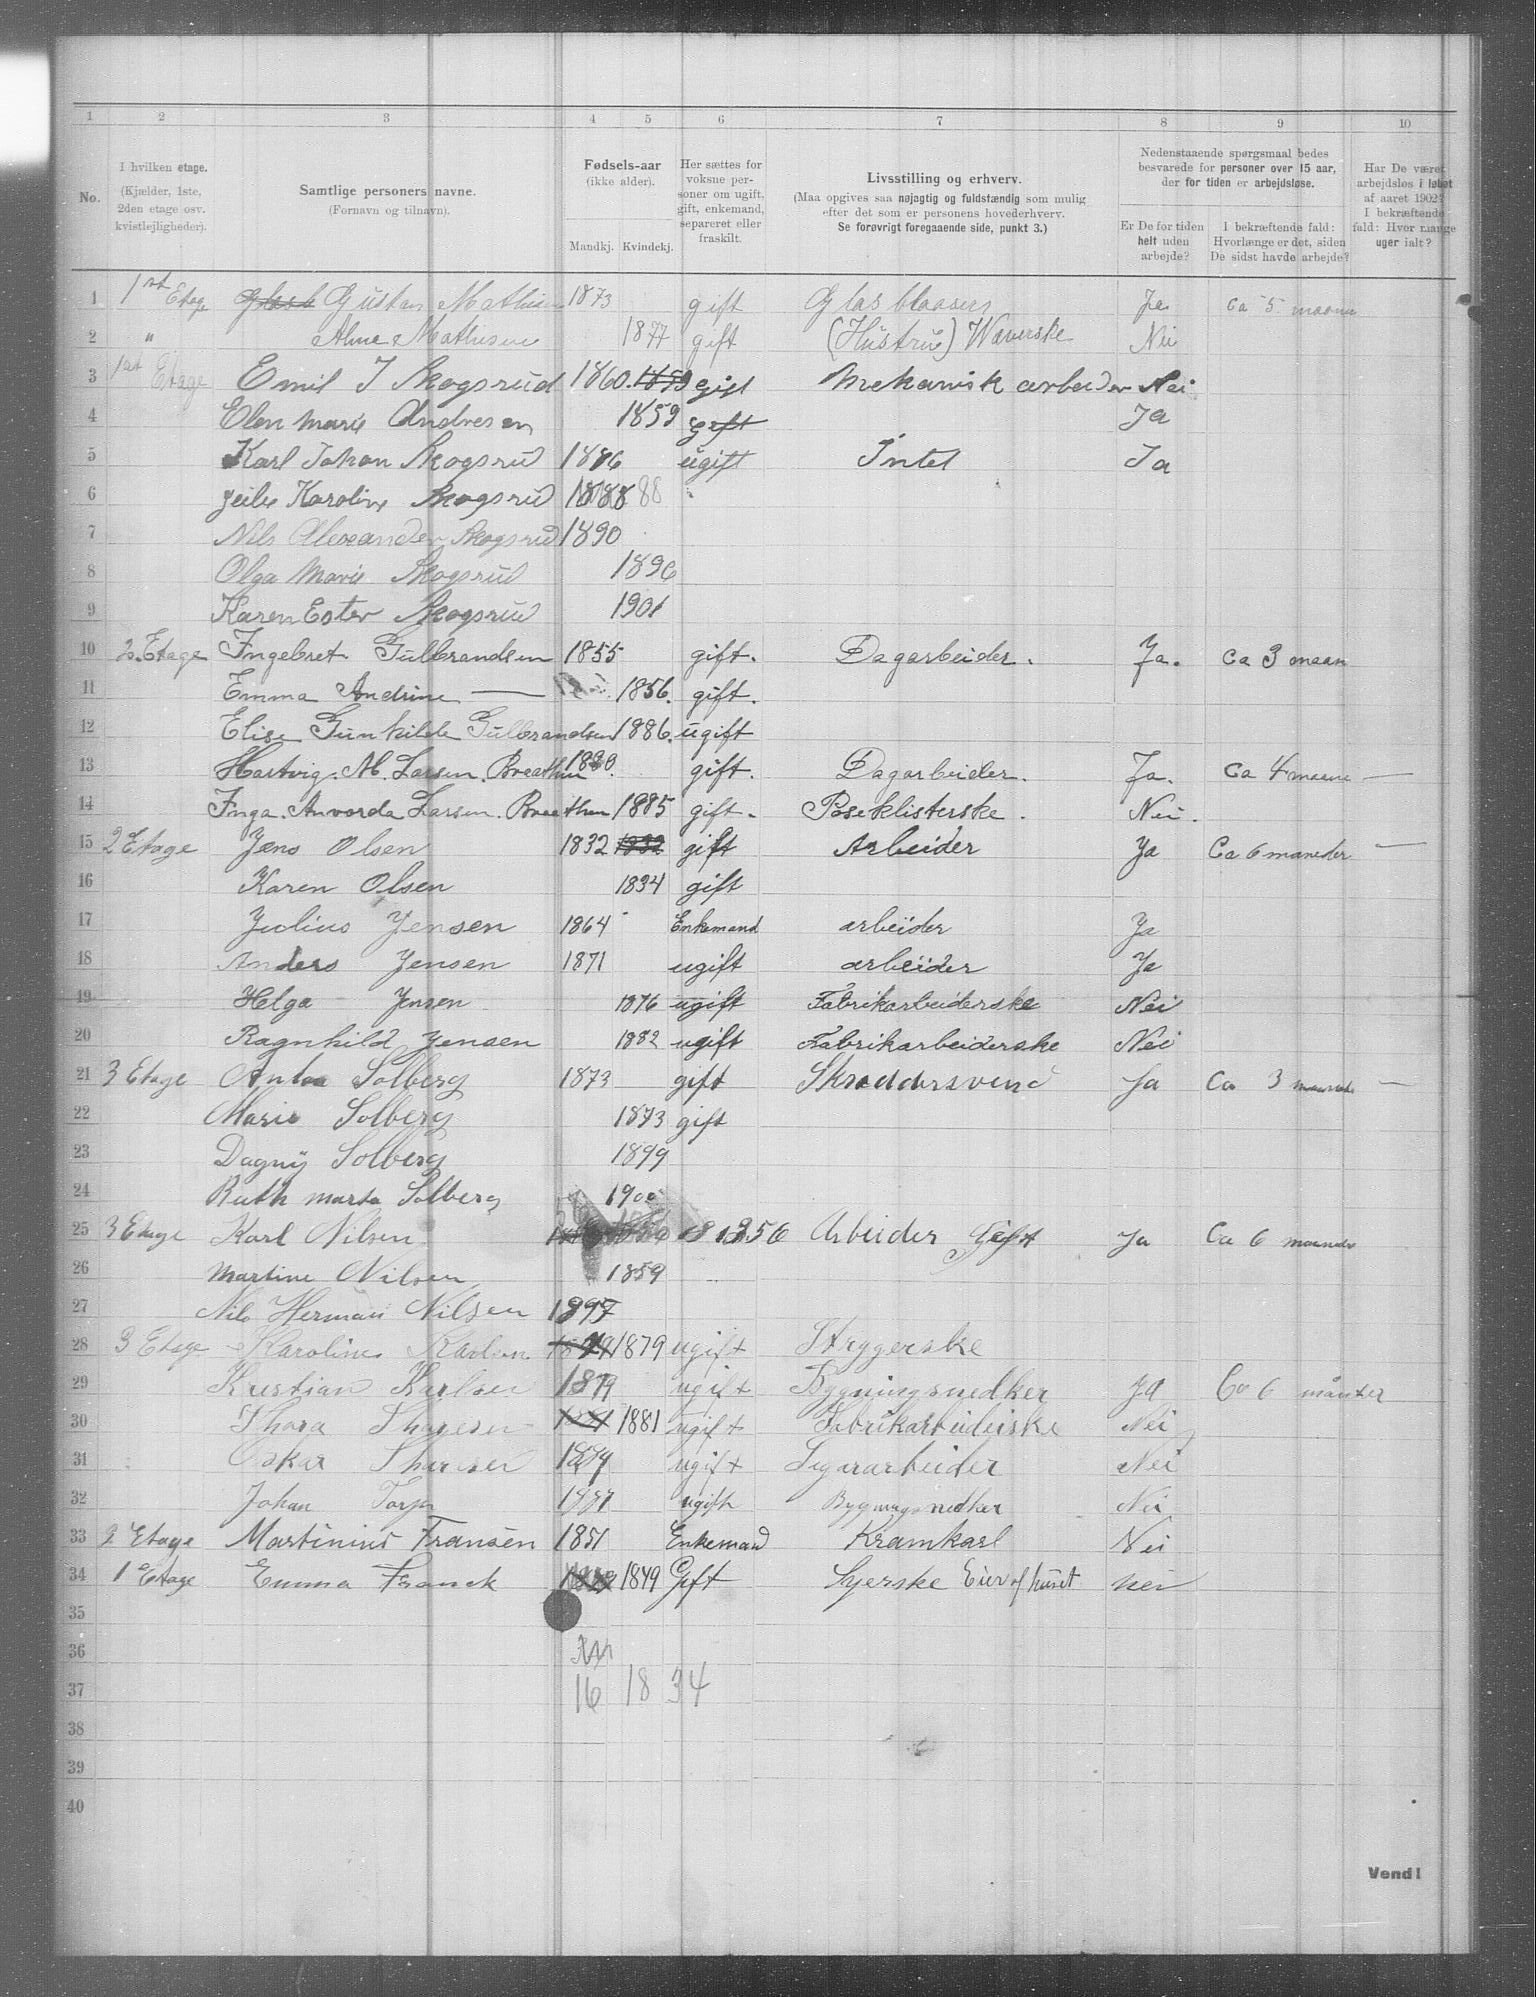 1 2 3 4 5 6 7 8 9 10
No. I hvilken etage. (Kjælder, 1ste, 2den etage osv. kvistlejligheder). Samtlige personers navne. (Fornavn og tilnavn). Fødsels-aar (ikke alder). Mandkj. Kvindekj. Her sættes for voksne per- soner om ugift, gift, enkemand, separeret eller fraskilt. Livsstilling og erhverv. (Maa opgives saa nøjagtig og fuldstændig som mulig efter det som er personens hovederhverv. Se forøvrigt foregaaende side, punkt 3.) Nedenstaaende spørgsmaal bedes besvarede for personer over 15 aar, der for tiden er arbejdsløse. Er De for tiden helt uden arbejde? I bekræftende fald: Hvorlænge er det, siden De sidst havde arbejde? Har De været arbejdsløs i løbet af aaret 1902? I bekræftende fald: Hvor mange uger ialt?
1 1st Etage Gustav Mathisen 1873 gift Glasblaaser Ja Ca 5 maane
2 " Alma Mathisen 1877 gift (Hustrue) Væverske Nei
3 1st Etage Emil J Skogsrud 1860 1859 gift Mekanisk arbeider Nei
4 Elen Marie Andresen 1859 gift Ja
5 Karl Johan Skogsrud 1886 ugift Intet Ja
6 Karoline Skogsrud 1888 88
7 Nils Alexander Skogsrud 1890
8 Olga Marie Skogsrud 1896
9 Karen Ester Skogsrud 1901
10 2. Etage Ingebret Gulbrandsen 1855 gift. Dagarbeider. Ja. Ca 3 maan
11 Emma Andrine — 1856. gift.
12 Elise Gunhilde Gulbrandsen 1886. ugift
13 Hartvig. M. Larsen. Breathen 1880. gift. Dagarbeider. Ja. Ca 4 maane —
14 Inga. Anvorda Larsen. Breathen 1885 gift. Poseklisterske. Nei.
15 2 Etage Jens Olsen 1832 1832 gift Arbeider Ja Ca 6 maneder —
16 Karen Olsen 1834 gift
17 Julius Jensen 1864 Enkemand arbeider Ja
18 Anders Jensen 1871 ugift arbeider Ja
19 Helga Jensen 1876 ugift Fabrikarbeiderske Nei
20 Ragnhild Jensen 1882 ugift Fabrikarbeiderske Nei
21 3 Etage Anton Solberg 1873 gift Skræddersvend Ja Ca 3 —
22 Marie Solberg 1873 gift
23 Dagny Solberg 1899
24 Ruth Marta Solberg 1900
25 3 Etage Karl Nilsen 1856 Arbeider Gift Ja Ca 6 maaneder
26 Martine Nilsen 1859
27 Nils Herman Nilsen 1897
28 3 Etage Karoline Karlsen 1879 1879 ugift Strygerske
29 Kristian Karlsen 1879 ugift Bygningsnedker Ja Ca 6 månter
30 Thora Thoresen 1881 1881 ugift Fabrikarbeiderske Nei
31 Oskar Thoresen ugift Sigararbeider Nei
32 Johan Torp 1877 ugift Bygningsnedker Nei
33 2 Etage Martinius Fransen 1851 Enkemand Kramkarl Nei
34 1 Etage Emma Franck 1849 1849 Gift Syerske Eier af huset Nei
35
36
37 16 18 34
38
39
40
Vend!